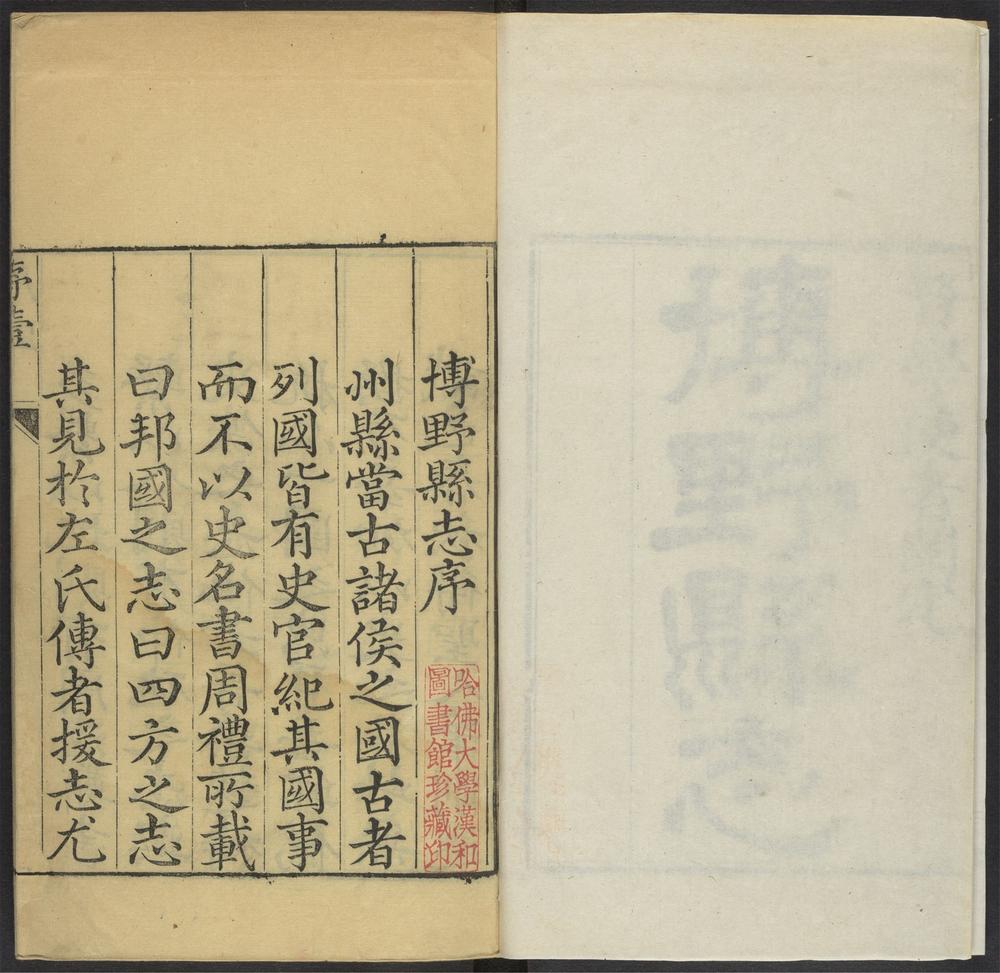 博野縣志序
州縣當古諸侯之國古者
列國皆有史官紀其國事
而不以史名書周禮所載
曰邦國之志曰四方之志
其見於左氏傳者援志尤
序壹
哈佛大學漢和
圖書館珍藏印